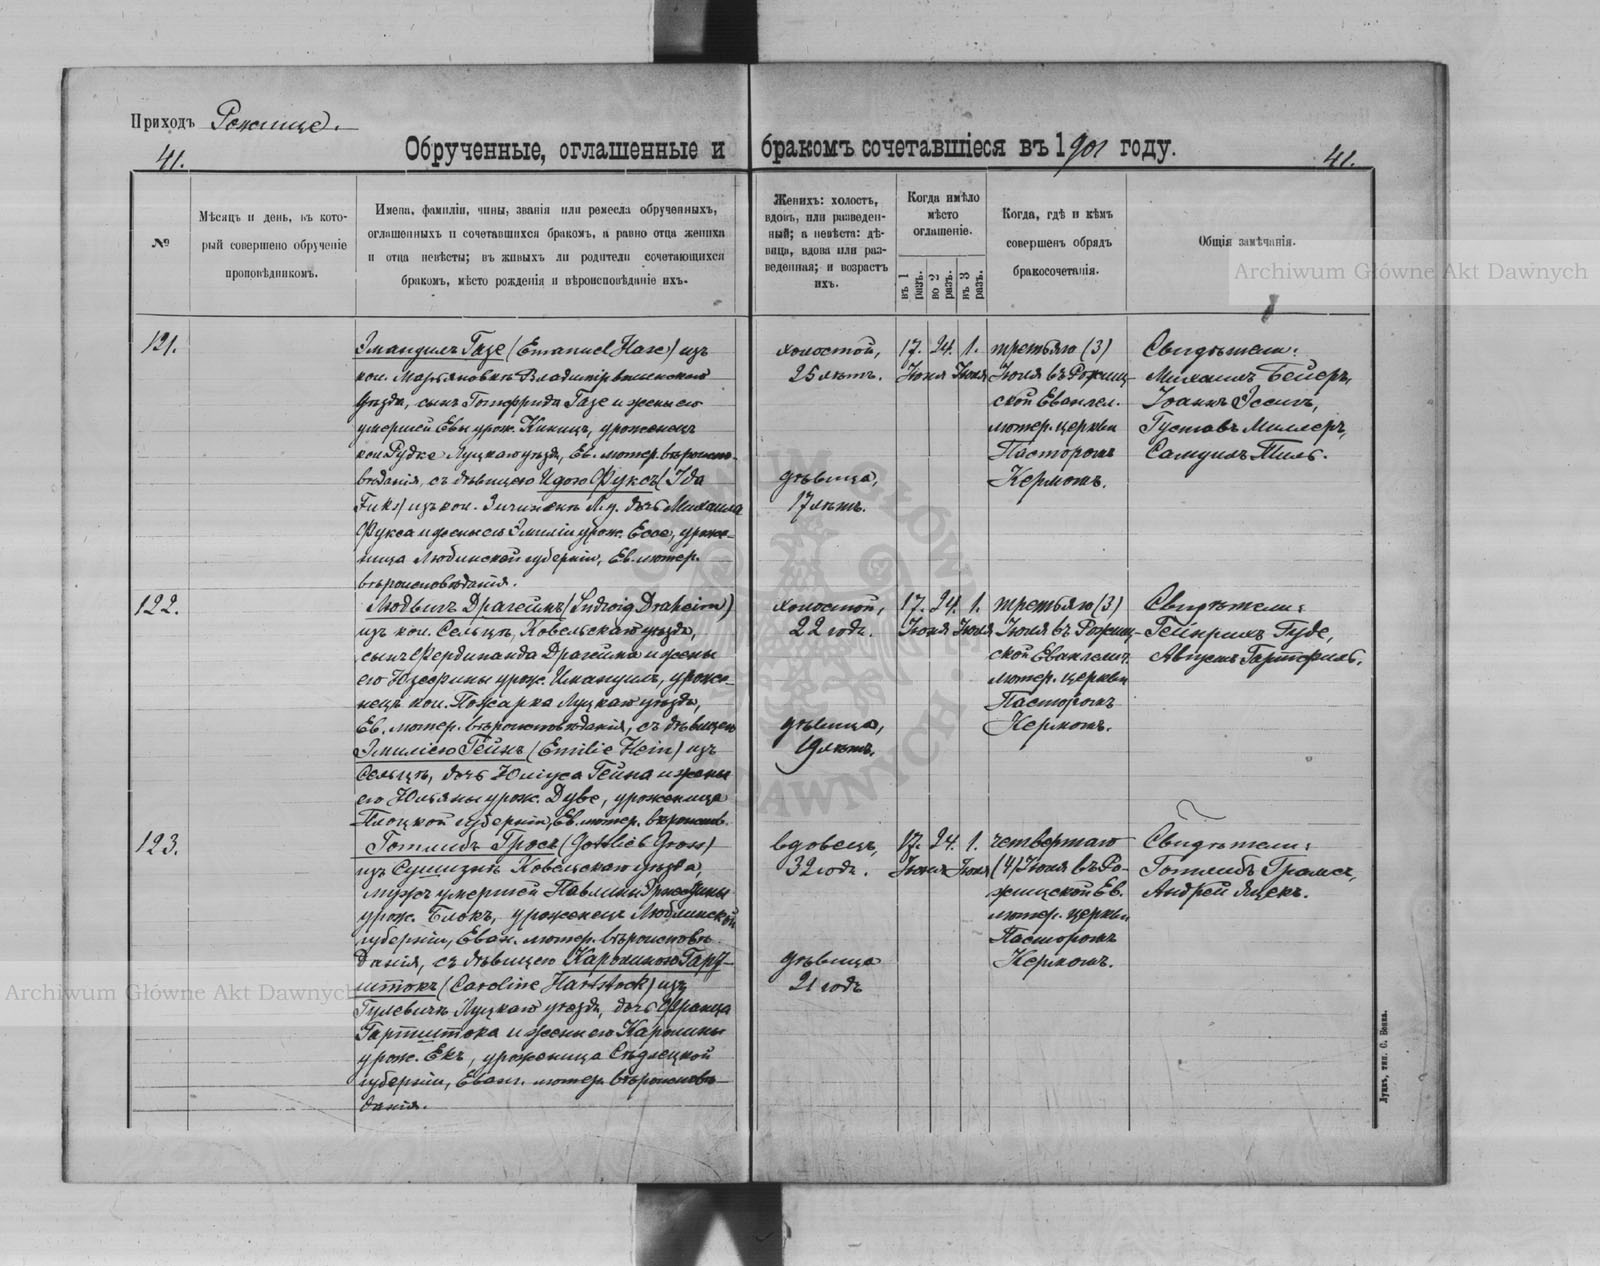 Приходъ Рожище.
41.
Обрученные, оглашенные и бракомъ сочетавшіеся въ 1901 году.
41.
№
Мѣсяцъ и день, въ который совершено обрученіе проповѣдникомъ.
Имена, фамиліи, чины, званія или ремесла обрученныхъ,
оглашенныхъ и сочетавшихся бракомъ, а равно отца жениха
и отца невѣсты; въ живыхъ ли родители сочетающихся
бракомъ, мѣсто рожденія и вѣроисповѣданіе ихъ.
Женихъ: холостъ,
вдовъ, или разведен-
ный; а невѣста: дѣ-
вица, вдова или раз-
веденная; и возрастъ
ихъ.
Когда имѣло
мѣсто
оглашеніе.
въ 1 разъ.
во 2 разъ.
въ 3 разъ.
Когда, гдѣ и кѣмъ
совершенъ обрядъ
бракосочетанія.
Общія замѣчанія.
Archiwum Główne Akt Dawnych
121.
Эмануилъ Газе (Emanuel Hase) изъ
кол. Марьяновкѣ Владимірволынскаго
уѣзда, сынъ Готфрида Газе и жены его
умершей Евы урож. Киницъ, уроженецъ
кол. Рудке Луцкаго уѣзда, Ев. лютер. вѣроиспо-
вѣданія, съ дѣвицею Идою Фуксъ (Ida
Fuks) изъ кол. Л. у. дочь Михаила
Фукса и жены его Эмиліи урож. Ессе, уроже-
ница Люблинской губерніи, Ев. лютер.
вѣроисповѣданія.
холостой,
25 лѣтъ.
дѣвица,
17 лѣтъ.
17. 24. 1.
Іюня Іюля
третьяго (3)
Іюля въ Рожищ-
ской Евангел.
лютер. церкви
Пасторомъ
Керномъ.
Свидѣтели:
Михаилъ Бейеръ,
Іоаннъ Эссигъ,
Густавъ Миллеръ,
Самуилъ Тиль.
122.
Людвигъ Драгеймъ (Ludwig Draheim)
изъ кол. Сельцѣ, Ковельскаго уѣзда,
сынъ Фердинанда Драгейма и жены
его Юзефины урож. Имануилъ, уроже-
нецъ кол. Пожарка Луцкаго уѣзда,
Ев. лютер. вѣроисповѣданія, съ дѣвицею
Эмиліею Гейнъ (Emilie Hein) изъ
Сельцѣ, дочь Юліуса Гейна и жены
его Юльяны урож. Дубе, уроженица
Плоцкой губерніи, Ев. лютер. вѣроиспов.
холостой,
22 года.
дѣвица,
19 лѣтъ.
17. 24. 1.
Іюня Іюля
третьяго (3)
Іюля въ Рожищ-
ской Евангелич.
лютер. церкви
Пасторомъ
Керномъ.
Свидѣтели:
Гейнрихъ Гуде,
Августъ Гартфиль.
123.
Готлибъ Гросъ (Gottlieb Gross)
изъ Ковельскаго уѣзда,
мужъ умершей Павлины
урож. Блокъ, уроженецъ Люблинской
губерніи, Еван. лютер. вѣроисповѣ-
данія, съ дѣвицею Каролиною Гарт-
штокъ (Caroline Hartstock) изъ
Гулевичъ Луцкаго уѣзда, дочь Франца
Гартштока и жены его Каролины
урож. Екъ, уроженица Сѣдлецкой
губерніи, Еванг. лютер. вѣроисповѣ-
данія.
вдовецъ,
32 года.
дѣвица
21 годъ
17. 24. 1.
Іюня Іюля
четвертаго
(4) Іюля въ Ро-
жищской Ев.
лютер. церкви
Пасторомъ
Керномъ.
Свидѣтели:
Готлибъ Грамсъ,
Андрей Яцекъ.
Archiwum Główne Akt Dawnych
Луцкъ, тип. С. Бонка.